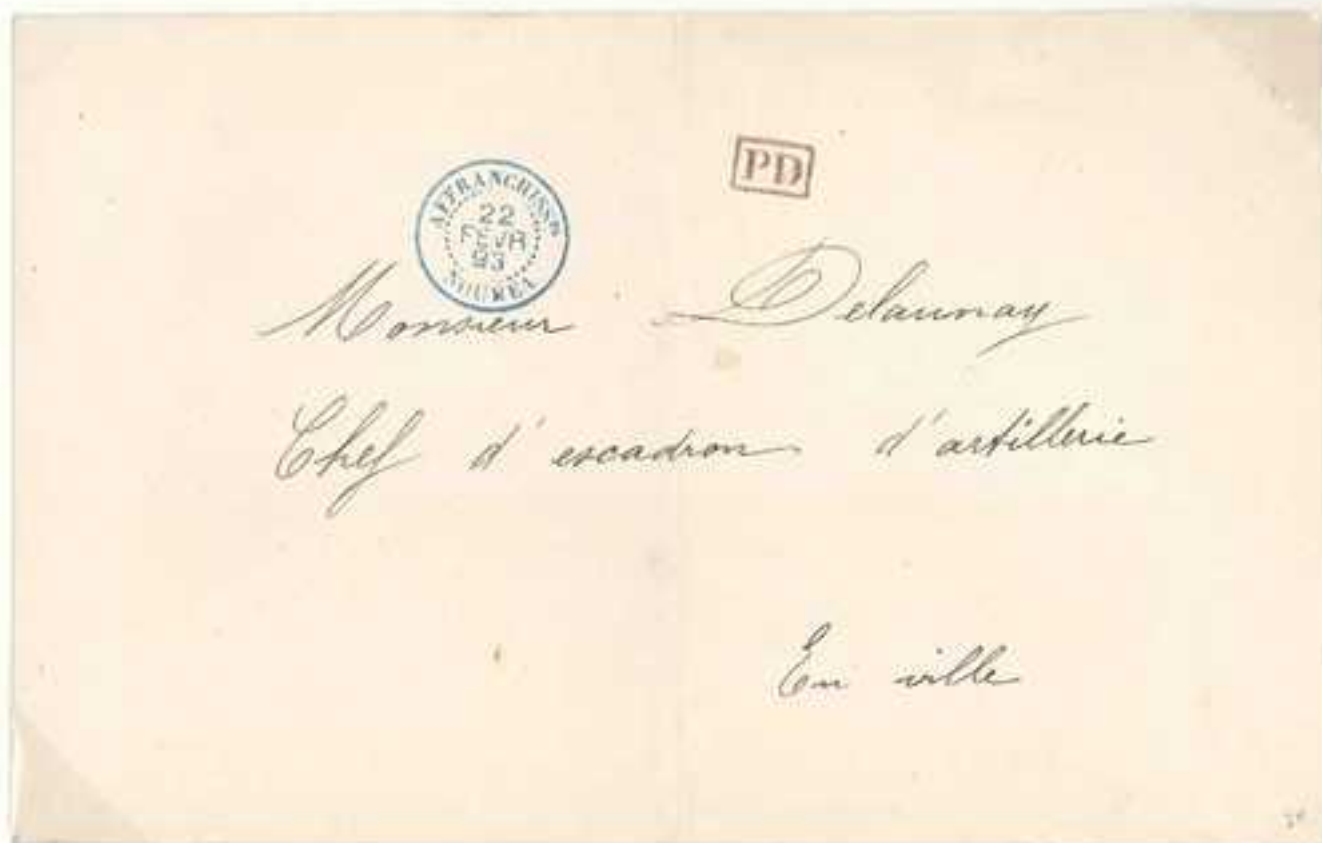 AFFRANCHISSTS
22
FEVR
93
NOUMEA
PD
Monsieur Delaunay
Chef d'escadron d'artillerie
En ville